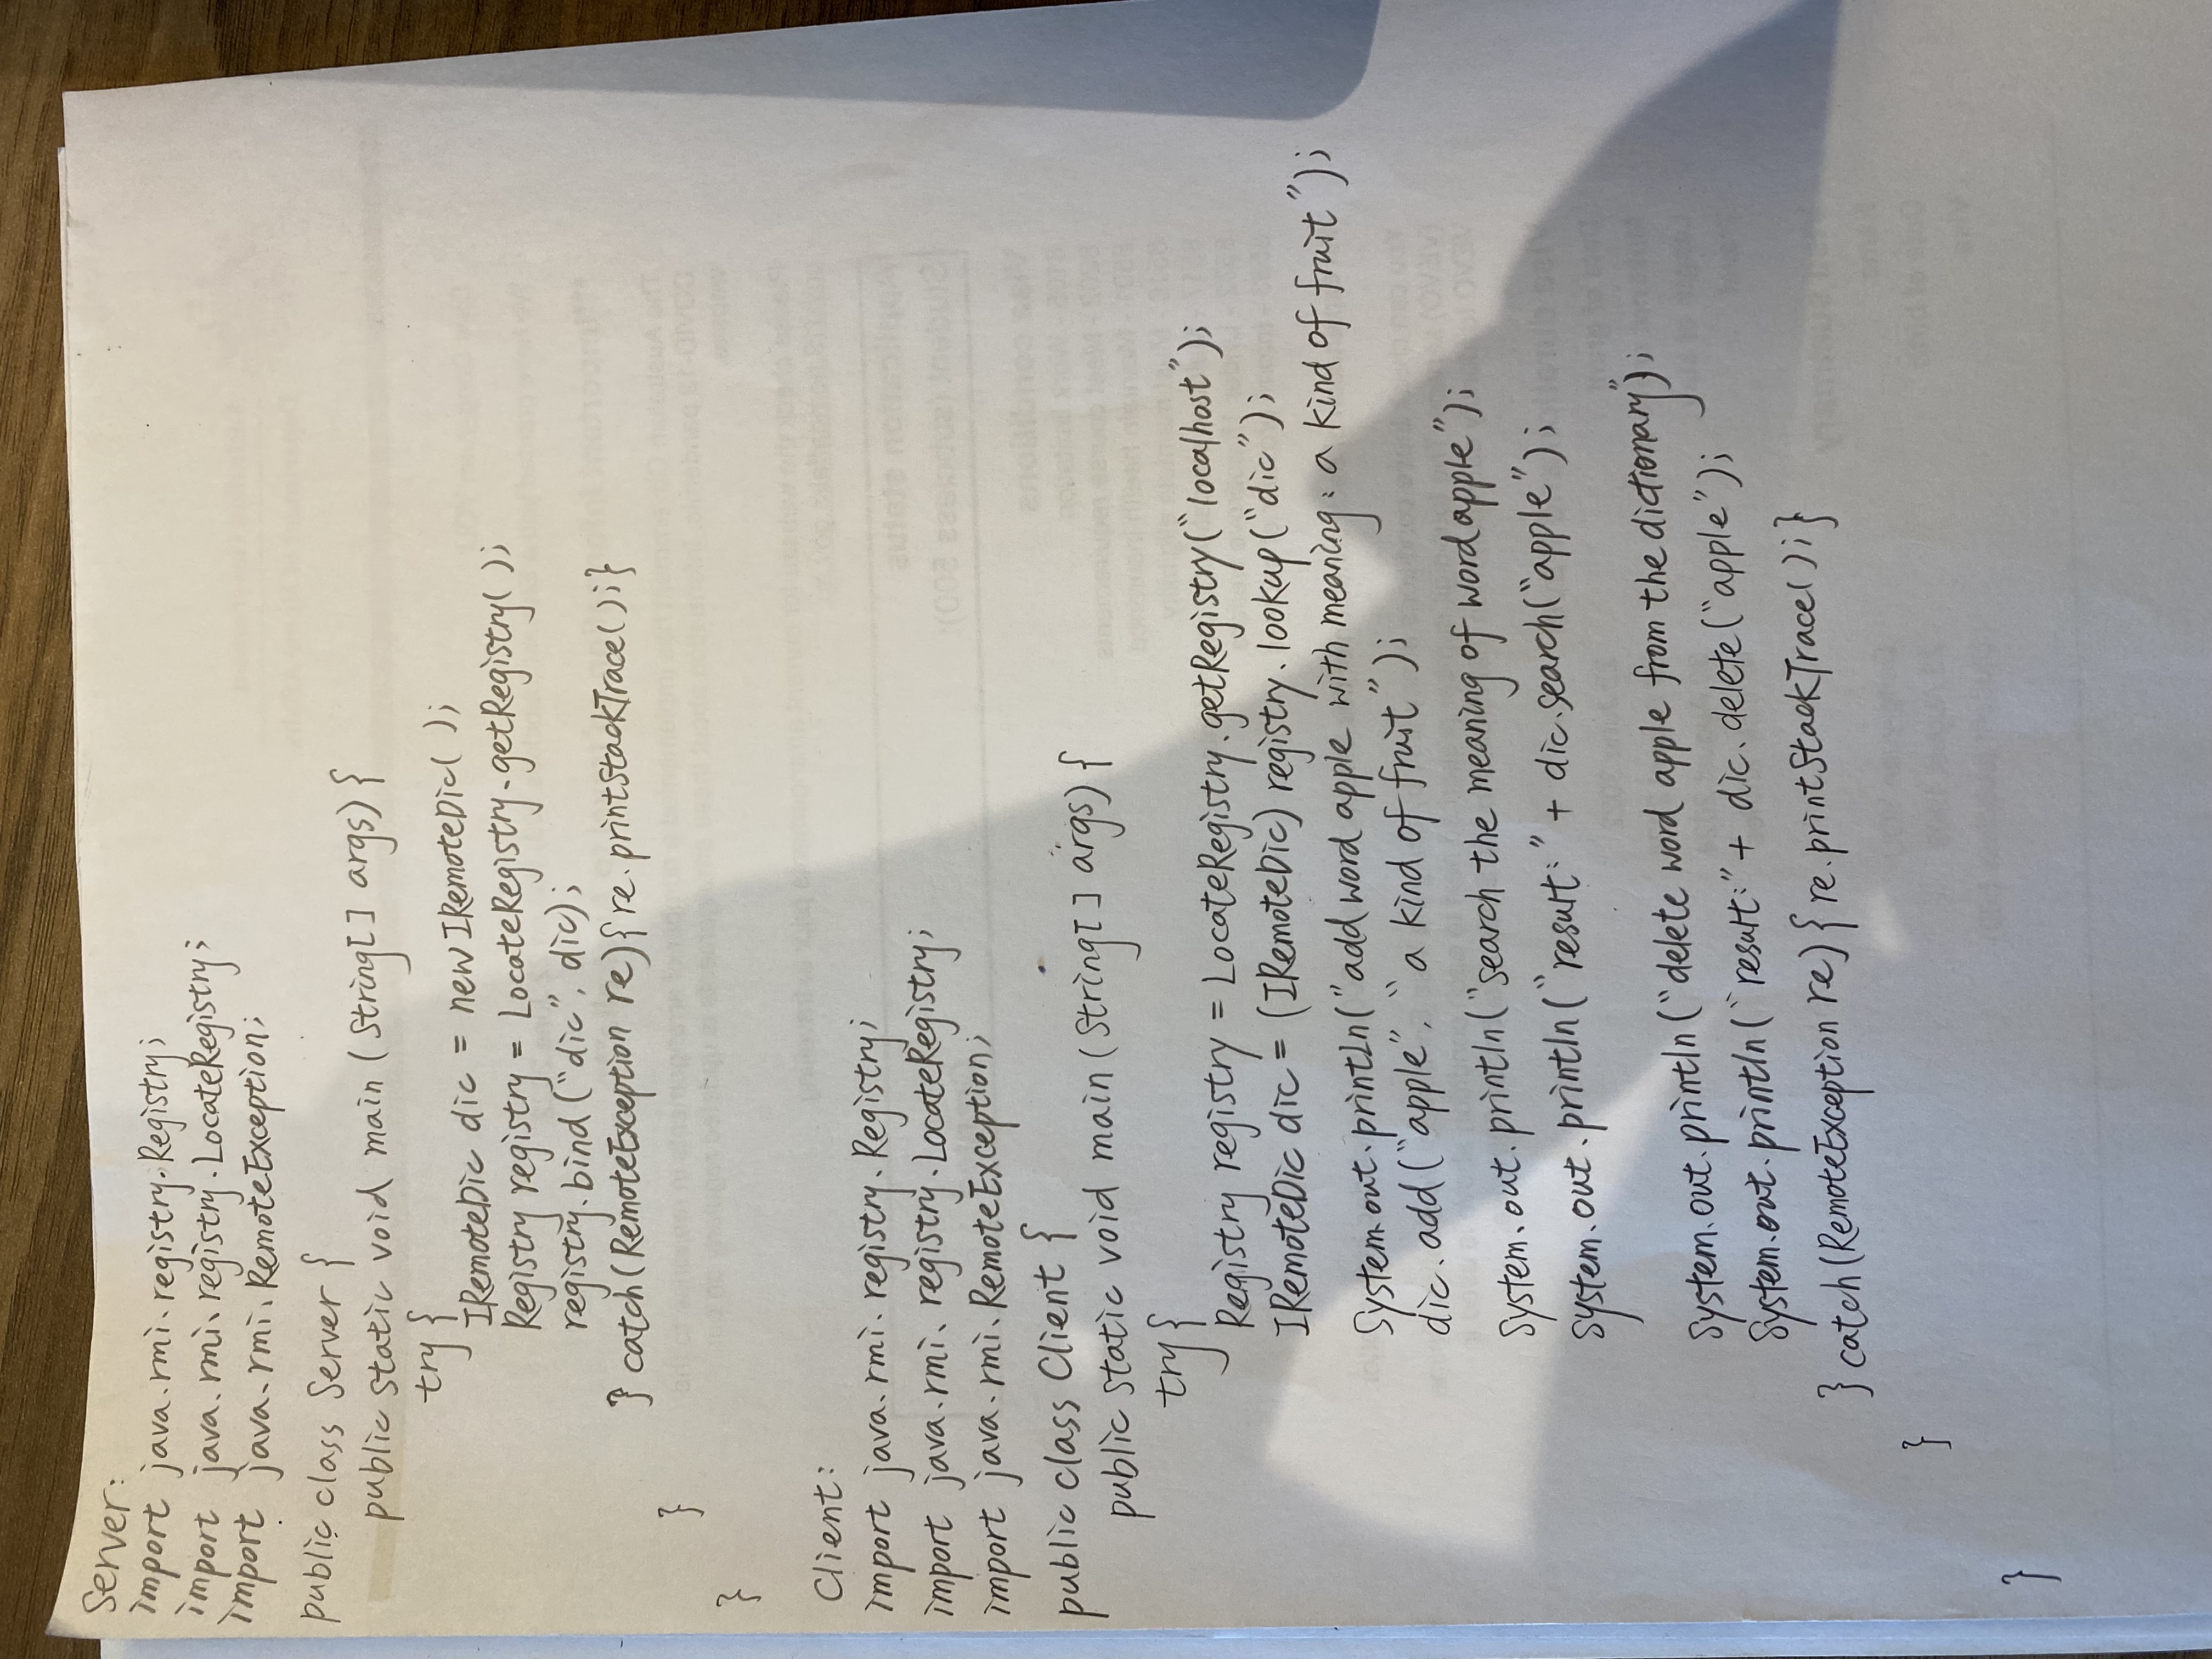 Server:
import java.rmi.registry.Registry;
import java.rmi.registry.LocateRegistry;
import java.rmi.RemoteException;
public class Server {
public static void main (String[ ] args) {
try {
IRemoteDic dic = new IRemoteDic( );
Registry registry = LocateRegistry.getRegistry( );
registry.bind ("dic", dic);
} catch(RemoteException re){ re.printStackTrace( );}
}
}
Client:
import java.rmi.registry.Registry;
import java.rmi.registry.LocateRegistry;
import java.rmi.RemoteException;
public class Client {
public static void main (String[ ] args) {
try {
Registry registry = LocateRegistry.getRegistry("localhost");
IRemoteDic dic = (IRemoteDic) registry.lookup("dic");
System.out.println("add word apple with meaning: a kind of fruit");
dic.add("apple", "a kind of fruit");
System.out.println("search the meaning of word apple");
System.out.println("result:" + dic.search("apple");
System.out.println("delete word apple from the dictionary");
System.out.println("result:" + dic.delete("apple");
} catch(RemoteException re){ re.printStackTrace( );}
}
}